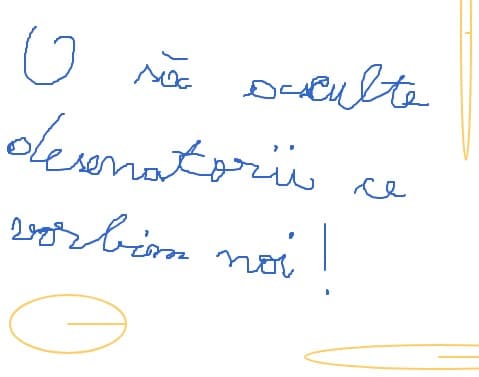 O să asculte
desenatorii ce
vorbim noi!